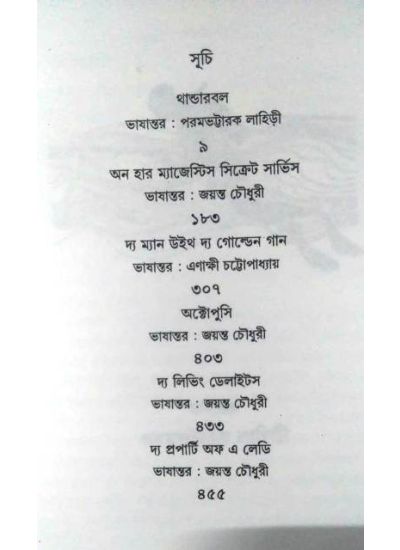 সূচি
থান্ডারবল
ভাষান্তর : পরমভট্টারক লাহিড়ী
৯
অন হার ম্যাজেস্টিস সিক্রেট সার্ভিস
ভাষান্তর : জয়ন্ত চৌধুরী
১৮৩
দ্য ম্যান উইথ দ্য গোল্ডেন গান
ভাষান্তর : এণাক্ষী চট্টোপাধ্যায়
৩০৭
অক্টোপুসি
ভাষান্তর : জয়ন্ত চৌধুরী
৪০৩
দ্য লিভিং ডেলাইটস
ভাষান্তর : জয়ন্ত চৌধুরী
৪৩৩
দ্য প্রপার্টি অফ এ লেডি
ভাষান্তর : জয়ন্ত চৌধুরী
৪৫৫